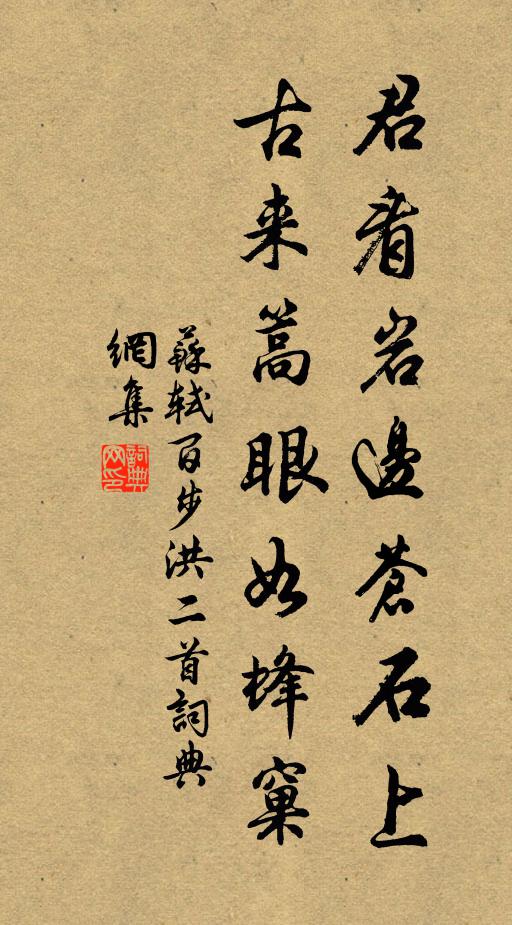 君看岩邊蒼石上
古来篙眼如蜂窠
蘇軾百步洪二首詞典
網集
詞典網印